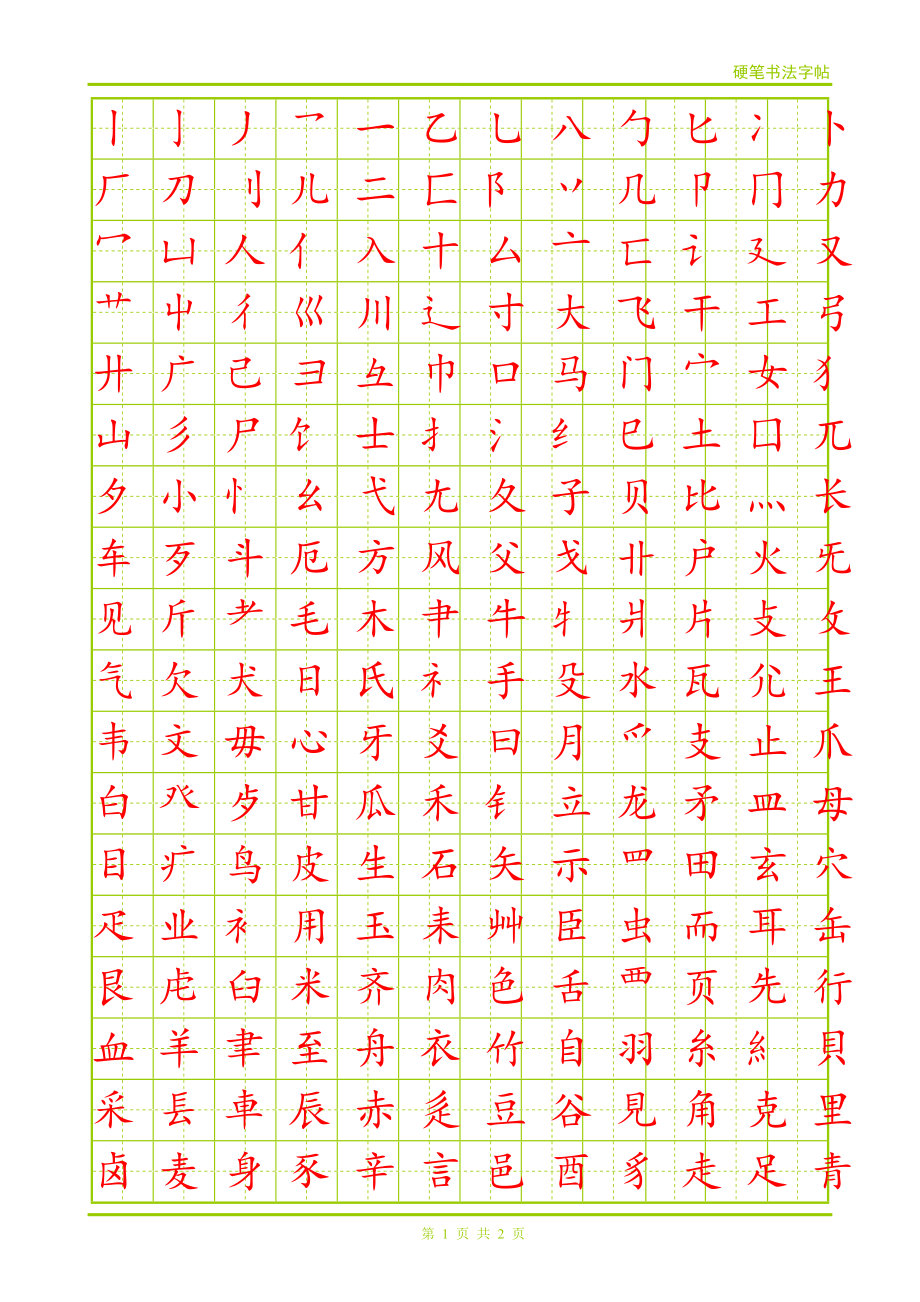 硬笔书法字帖
丨亅丿乛一乙乚八勹匕冫卜
厂刀刂儿二匚阝丷几卩冂力
冖凵人亻入十厶亠匸讠廴又
艹屮彳巛川辶寸大飞干工弓
廾广己彐彑巾口马门宀女犭
山彡尸饣士扌氵纟巳土囗兀
夕小忄幺弋尢夂子贝比灬长
车歹斗厄方风父戈卝户火旡
见斤耂毛木肀牛牜爿片攴攵
气欠犬日氏礻手殳水瓦尣王
韦文毋心牙爻曰月爫支止爪
白癶歺甘瓜禾钅立龙矛皿母
目疒鸟皮生石矢示罒田玄穴
疋业衤用玉耒艸臣虫而耳缶
艮虍臼米齐肉色舌覀页先行
血羊聿至舟衣竹自羽糸糹貝
采镸車辰赤辵豆谷見角克里
卤麦身豕辛言邑酉豸走足青
第 1 页 共 2 页